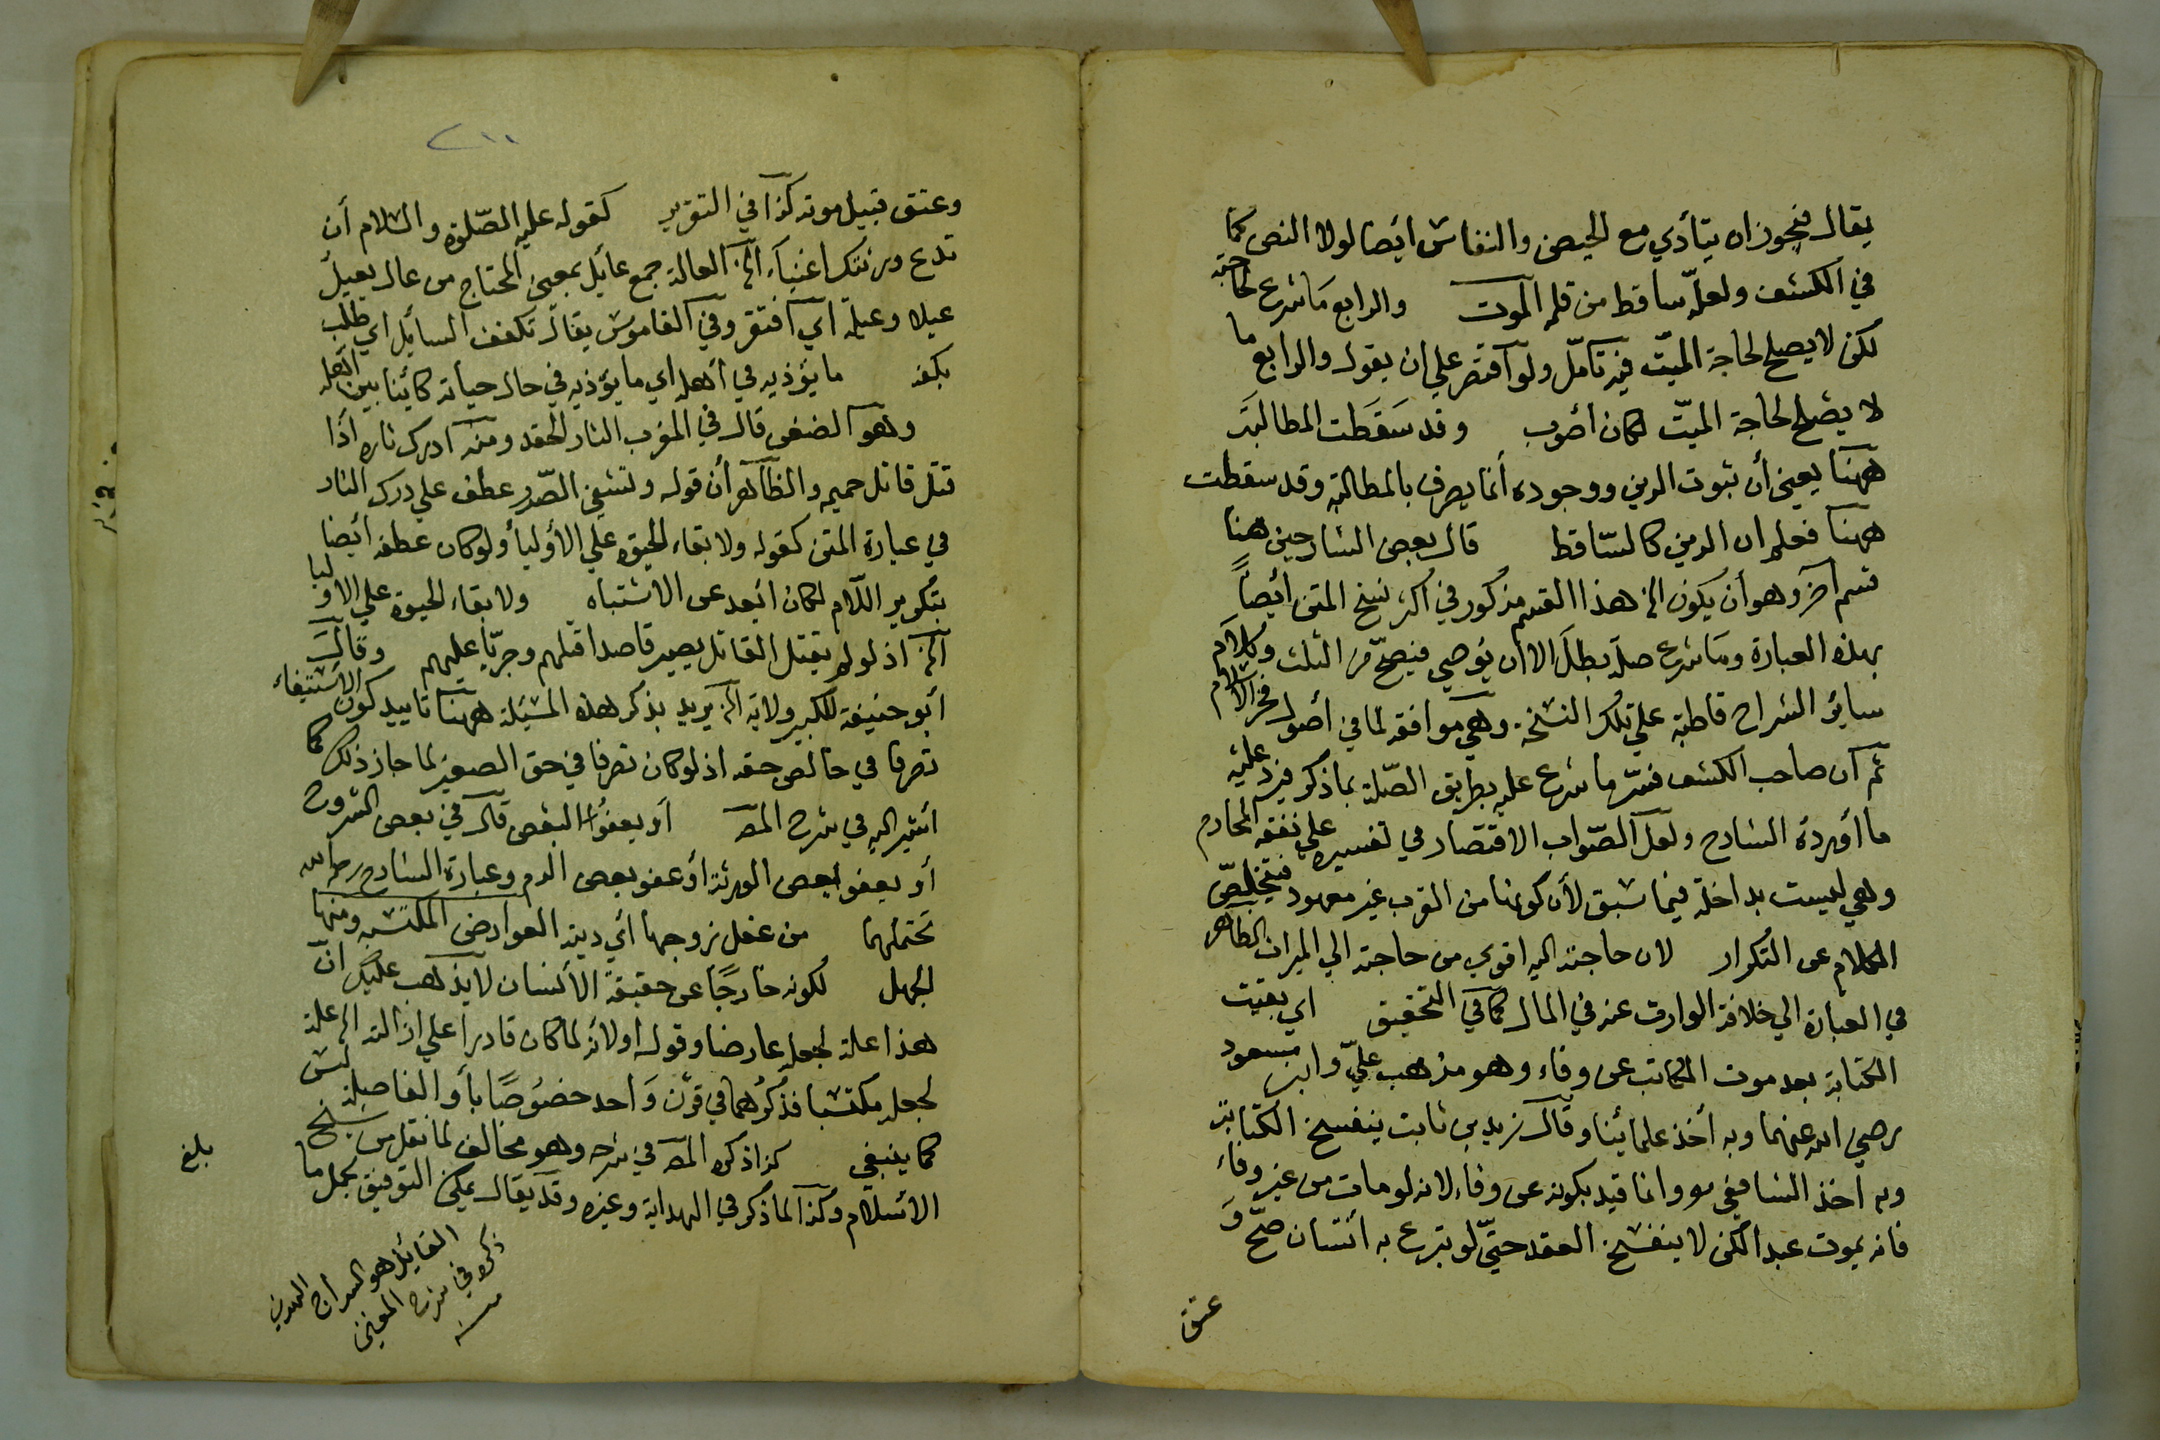 يقال فيجوز ان يتأدي مع الحيض والنفاس ايضا لولا النص كما
في الكشف ولعله ساقط من قلم الموت والرابع ما شرع لحاجته
لكن لا يصلح لحاجة الميت فيه تأمل ولو اقتصر علي ان يقول والرابع ما
لا يصلح لحاجة الميت لكان أصوب وقد سقطت المطالبة
ههنا يعني أن ثبوت الدين ووجوده أنما يعرف بالمطالبة وقد سقطت
ههنا فعلم ان الدين كالساقط قال بعض الشارحين هنا
قسم آخر وهو أن يكون الخ هذا القسم مذكور في أكثر نسخ المتن أيضاً
بهذه العبارة وما شرع صلة بطل الا ان يوصي فيصح من الثلث وكلام
سائر الشراح قاطبة علي تلك النسخة وهي موافقة لما في أصول فخر الاسلام
ثم ان صاحب الكشف فسر ما شرع عليه بطريق الصلة بما ذكر فيرد عليه
ما أورده الشارح ولعل الصواب الاقتصار في تفسيره علي نفقة المحارم
وهي ليست بداخلة فيما سبق لأن كونها من القرب غير معهود فيتخلص
الكلام عن التكرار لان حاجته اليه اقوي من حاجته الي الميراث الظاهر
في العبارة الي خلافة الوارث عنه في المال كما في التحقيق اي بقيت
الكتابة بعد موت المكاتب عن وفاء وهو مذهب علي وابن مسعود
رضي الله عنهما وبه أخذ علمائنا وقال زيد بن ثابت ينفسخ الكتابة
وبه اخذ الشافعي وانما قيد بكونه عن وفاء لانه لو مات من غير وفاء
فانه يموت عبدا لكن لا ينفسخ العقد حتي لو تبرع به انسان صح و
عتق
٢١١
وعتق قبيل موته كذا في التقرير كقوله عليه الصلوة والسلام أن
تدع ورثتك اغنياء الخ العالة جمع عائل بمعني المحتاج من عال يعيل
عيلا وعيلة اي افتقر وفي القاموس يقال تكفف السائل اي طلب
بكفه ما يؤذيه في أهله اي ما يؤذيه في حال حياته كائنا بين أهله
وهو الضغن قال في المغرب الثار الحقد ومنه ادرك ثاره اذا
قتل قاتل حميمه والظاهر أن قوله وتشفي الصدر عطف علي درك الثار
في عبارة المتن كقوله ولا بقاء الحيوة علي الأوليا ولو كان عطفه أيضا
بتكرير اللام لكان ابعد عن الاشتباه ولا بقاء الحيوة علي الاوليا
الخ اذ لو لم يقتل القاتل يصير قاصدا قتلهم وجريا عليهم وقال
أبو حنيفة للكبير ولاية الخ يريد بذكر هذه المسئلة ههنا تاييد كون الاستيفاء
تصرفا في خالص حقه اذ لو كان تصرفا في حق الصغير لما جاز ذلك كما
أشير اليه في شرح المص أو يعفوا البعض قال في بعض الشروح
أو يعفو بعض الورثة أو عفو بعض الدم وعبارة الشارح رحمه الله
تحتملهما من عقل زوجها أي ديته العوارض المكتسبة ومنها
الجهل لكونه خارجًا عن حقيقة الأنسان لا يذهب عليك انّ
هذا علة لجعله عارضا وقوله اولانه لما كان قادرا علي ازالته الخ علة
لجعله مكتسبا فذكرهما في قرن واحد خصوصًا بأو الفاصلة ليس
كما ينبغي كذا ذكره المص في شرحه وهو مخالف لما نقل من شيخ
الاسلام وكذا لما ذكر في الهداية وغيره وقد يقال يمكن التوفيق بحمل ما
بلغ
القائل هو السراج الهندي
ذكره في شرح المغني
منه